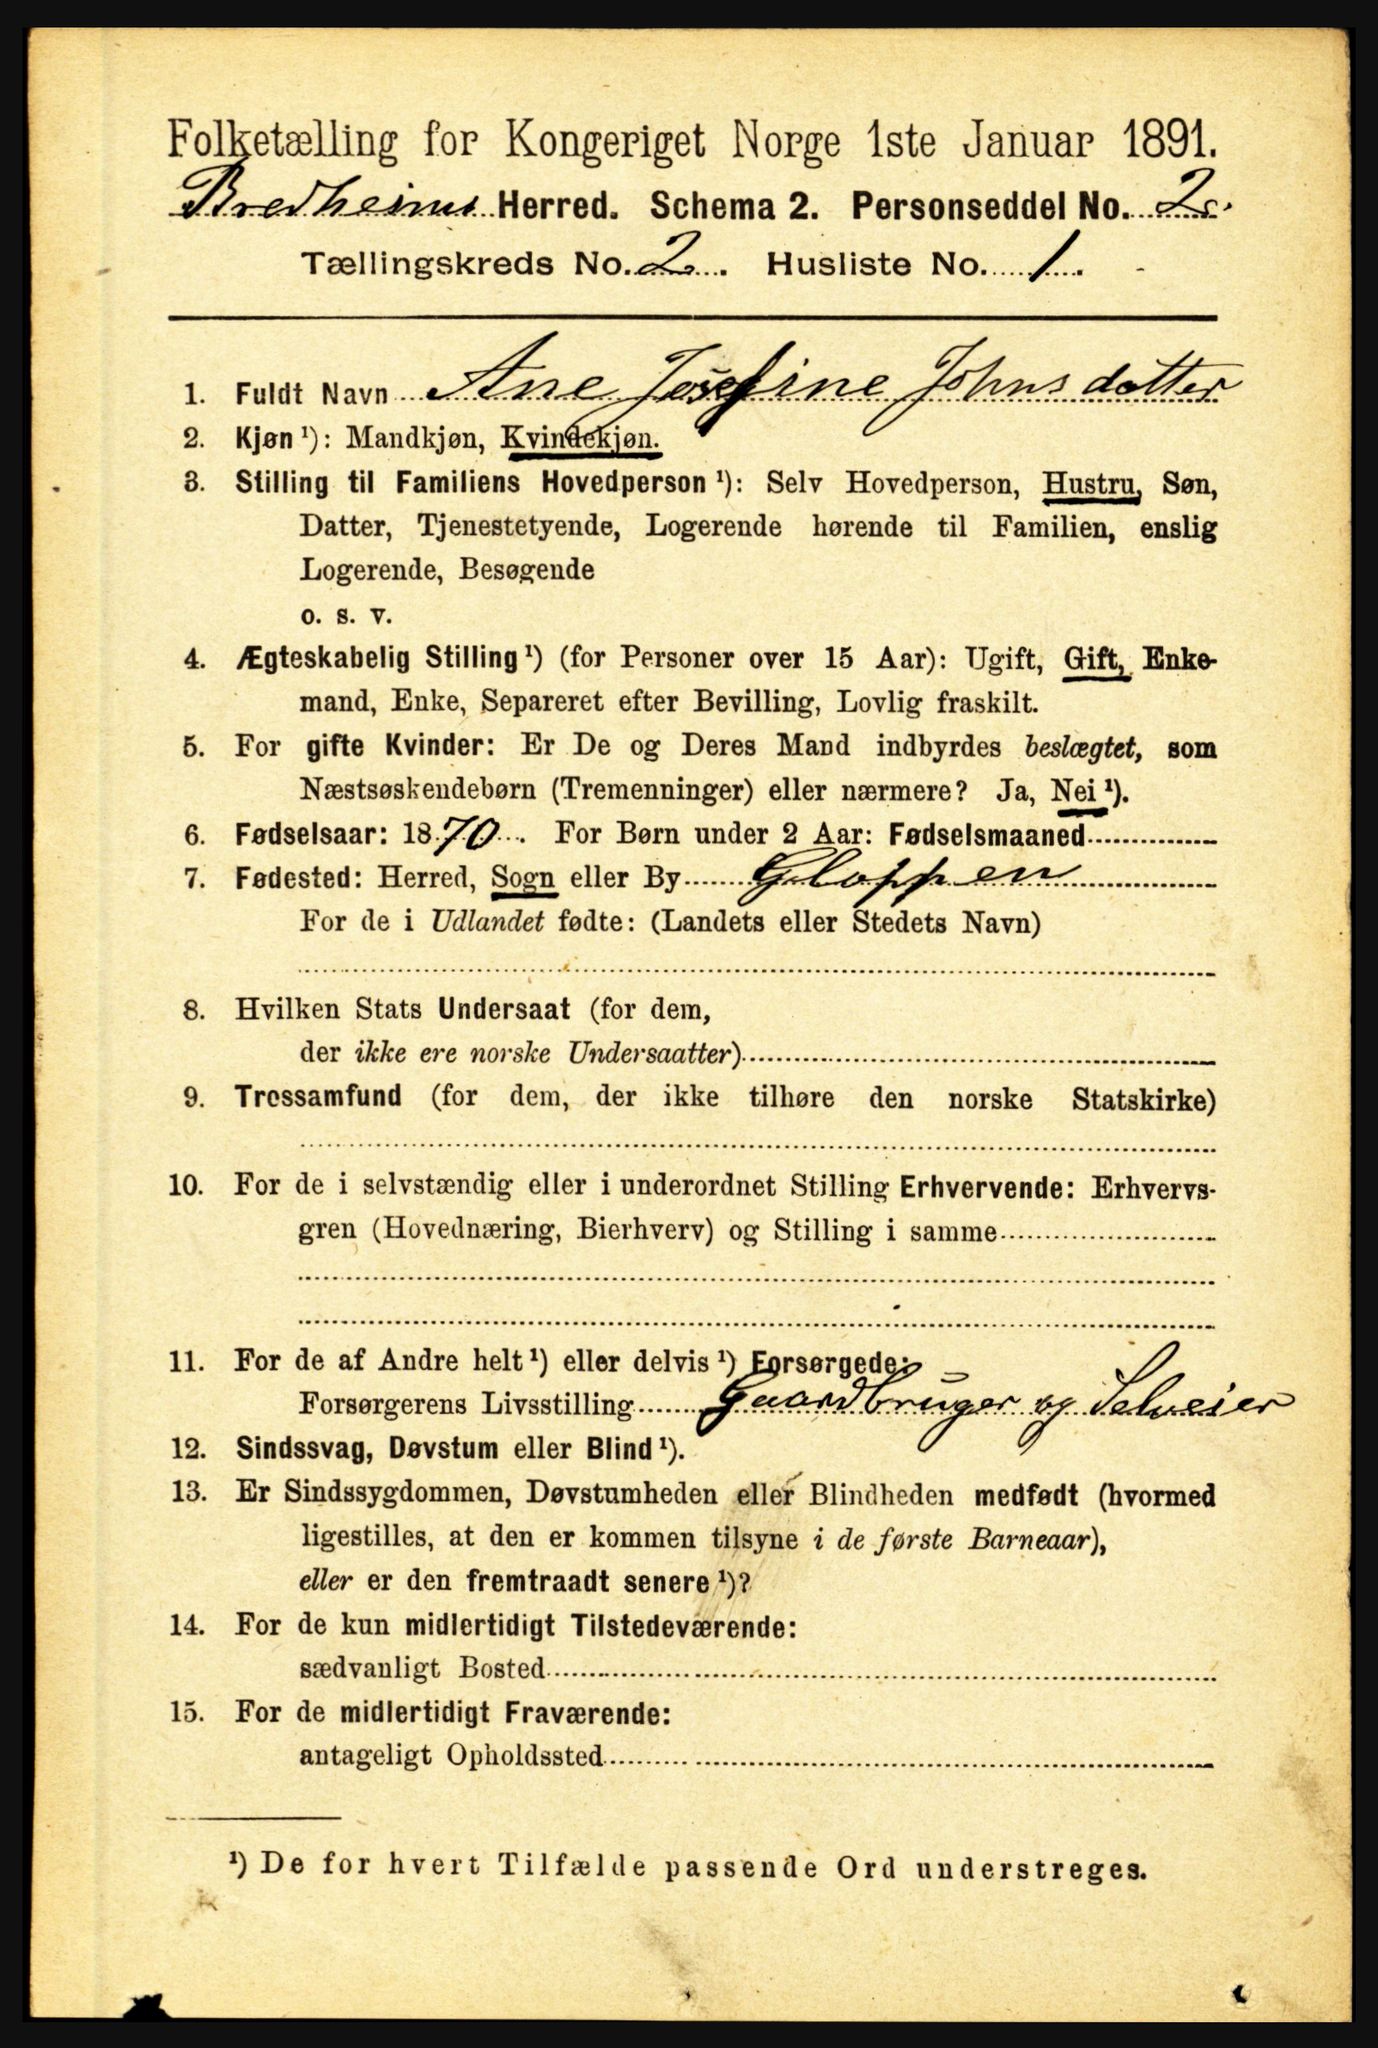 Folketælling for Kongeriget Norge 1ste Januar 1891.
Bredheims Herred. Schema 2. Personseddel No. 2.
Tællingskreds No. 2. Husliste No. 1.
1. Fuldt Navn Ane Josefine Johnsdatter
2. Kjøn ¹): Mandkjøn, Kvindekjøn.
3. Stilling til Familiens Hovedperson ¹): Selv Hovedperson, Hustru, Søn,
Datter, Tjenestetyende, Logerende hørende til Familien, enslig
Logerende, Besøgende
o. s. v.
4. Ægteskabelig Stilling ¹) (for Personer over 15 Aar): Ugift, Gift, Enke-
mand, Enke, Separeret efter Bevilling, Lovlig fraskilt.
5. For gifte Kvinder: Er De og Deres Mand indbyrdes beslægtet, som
Næstsøskendebørn (Tremenninger) eller nærmere? Ja, Nei ¹).
6. Fødselsaar: 1870. For Børn under 2 Aar: Fødselsmaaned
7. Fødested: Herred, Sogn eller By Gloppen
For de i Udlandet fødte: (Landets eller Stedets Navn)
8. Hvilken Stats Undersaat (for dem,
der ikke ere norske Undersaatter)
9. Trossamfund (for dem, der ikke tilhøre den norske Statskirke)
10. For de i selvstændig eller i underordnet Stilling Erhvervende: Erhvervs-
gren (Hovednæring, Bierhverv) og Stilling i samme
11. For de af Andre helt ¹) eller delvis ¹) Forsørgede:
Forsørgerens Livsstilling Gaardbruger og Selveier
12. Sindssvag, Døvstum eller Blind ¹).
13. Er Sindssygdommen, Døvstumheden eller Blindheden medfødt (hvormed
ligestilles, at den er kommen tilsyne i de første Barneaar),
eller er den fremtraadt senere ¹)?
14. For de kun midlertidigt Tilstedeværende:
sædvanligt Bosted
15. For de midlertidigt Fraværende:
antageligt Opholdssted
¹) De for hvert Tilfælde passende Ord understreges.